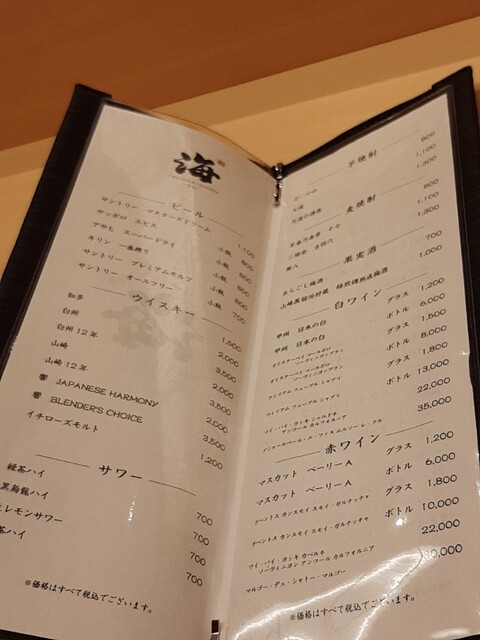 海
ビール
サントリー マスターズドリーム 1,100
サッポロ エビス 小瓶 800
アサヒ スーパードライ 小瓶 800
キリン 一番搾り 小瓶 800
サントリー プレミアムモルツ 小瓶 800
サントリー オールフリー 小瓶 700
ウイスキー
知多 1,500
白州 2,000
白州12年 3,500
山崎 2,000
山崎12年 3,500
響 JAPANESE HARMONY 2,000
響 BLENDER'S CHOICE 3,500
イチローズモルト 1,200
サワー
緑茶ハイ 700
黒烏龍ハイ 700
レモンサワー 700
茶ハイ 700
※価格はすべて税込でございます。
芋焼酎
800
1,100
1,300
麦焼酎
800
1,100
1,300
果実酒
あらごし梅酒 700
山崎蒸留所貯蔵 焙煎樽熟成梅酒 1,000
白ワイン
甲州 日本の白 グラス 1,200
甲州 日本の白 ボトル 6,000
グラス 1,500
ソーヴィニヨンブラン ボトル 8,000
ウィリアム フェーブル シャブリ グラス 1,800
ウィリアム フェーブル シャブリ ボトル 13,000
アンコール カルフォルニア 22,000
35,000
赤ワイン
マスカット ベーリーA グラス 1,200
マスカット ベーリーA ボトル 6,000
グラス 1,800
ボトル 10,000
ソーヴィニヨン アンコール カルフォルニア 22,000
マルゴー・デュ・シャトー・マルゴー 30,000
※価格はすべて税込でございます。